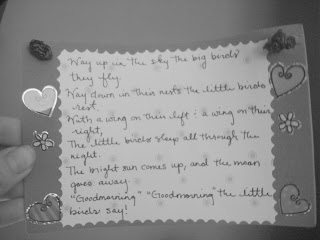 Way up in the sky the big birds
they fly.
Way down in their nests the little birds
rest.
With a wing on their left : a wing on their
right,
The little birds sleep all through the
night.
The bright sun comes up, and the moon
goes away
"Goodmorning" "Goodmorning" the little
birds say!